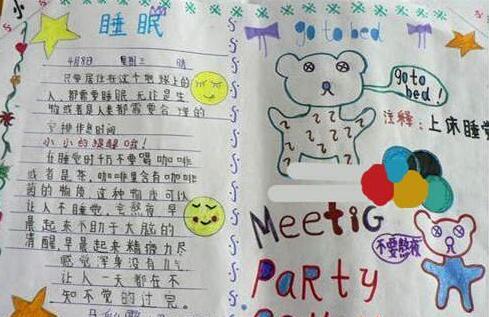 睡眠
4月8日 星期三 晴
只要居住在这个地球上的
人，都需要睡眠，无论是生
物或者是人类都需要合理的
安排作息时间
小小的提醒哦！
在睡觉时千万不要喝咖啡
或者是茶，咖啡里含有咖啡
因的物质，这种物质可以
让人不睡觉，会熬夜，早
晨起来不助于大脑的
清醒，早晨起来精神力尽
感觉浑身没有力气
让人一天都在不
知不觉的过完。
go to bed
go to
bed!
注释：上床睡觉
MeetiG
PaRty
不要熬夜